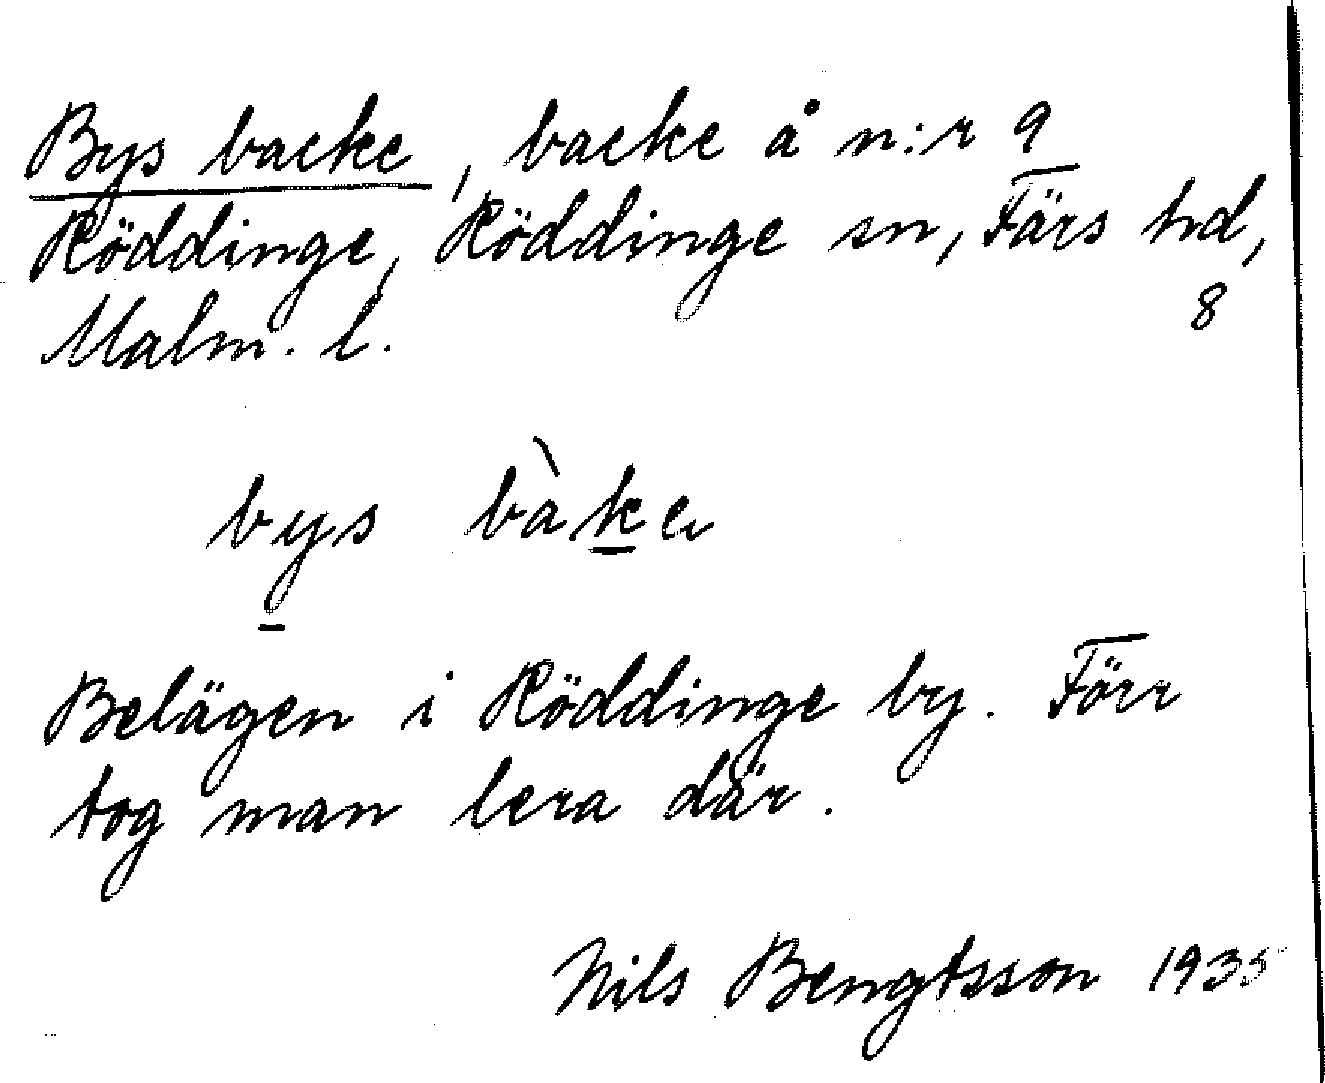 Bys backe, backe å n:r 9
Röddinge, Röddinge sn, Färs hd,
Malm. l. 8
bys bàke
Belägen i Röddinge by. Förr
tog man lera där.
Nils Bengtsson 1935